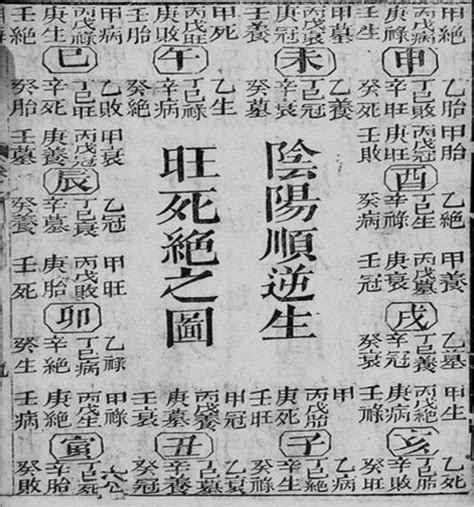 陰陽順逆生
旺死絕之圖
甲絕 丙戊病 庚祿 壬生
申
乙胎 丁己敗 辛旺 癸死
甲墓 丙戊衰 庚冠 壬養
未
乙養 丁己冠 辛衰 癸墓
甲死 丙戊旺 庚敗 壬胎
午
乙生 丁己祿 辛病 癸絕
甲病 丙戊祿 庚生 壬絕
巳
乙敗 丁己旺 辛死 癸胎
甲胎
酉
乙絕 丁己生 辛祿 癸病
甲衰 丙戊冠 庚養 壬墓
辰
乙冠 丁己衰 辛墓 癸養
甲養 丙戊墓 庚衰 壬冠
戌
乙墓 丁己養 辛冠 癸衰
甲旺 丙戊敗 庚胎 壬死
卯
乙祿 丁己病 辛絕 癸生
甲生 丙戊絕 庚病 壬祿
亥
乙死 丁己胎 辛敗 癸旺
甲敗 丙戊胎 庚死 壬旺
子
乙病 丁己絕 辛生 癸祿
甲冠 丙戊養 庚墓 壬衰
丑
乙衰 丁己墓 辛養 癸冠
甲祿 丙戊生 庚絕 壬病
寅
丁己死 辛胎 癸敗